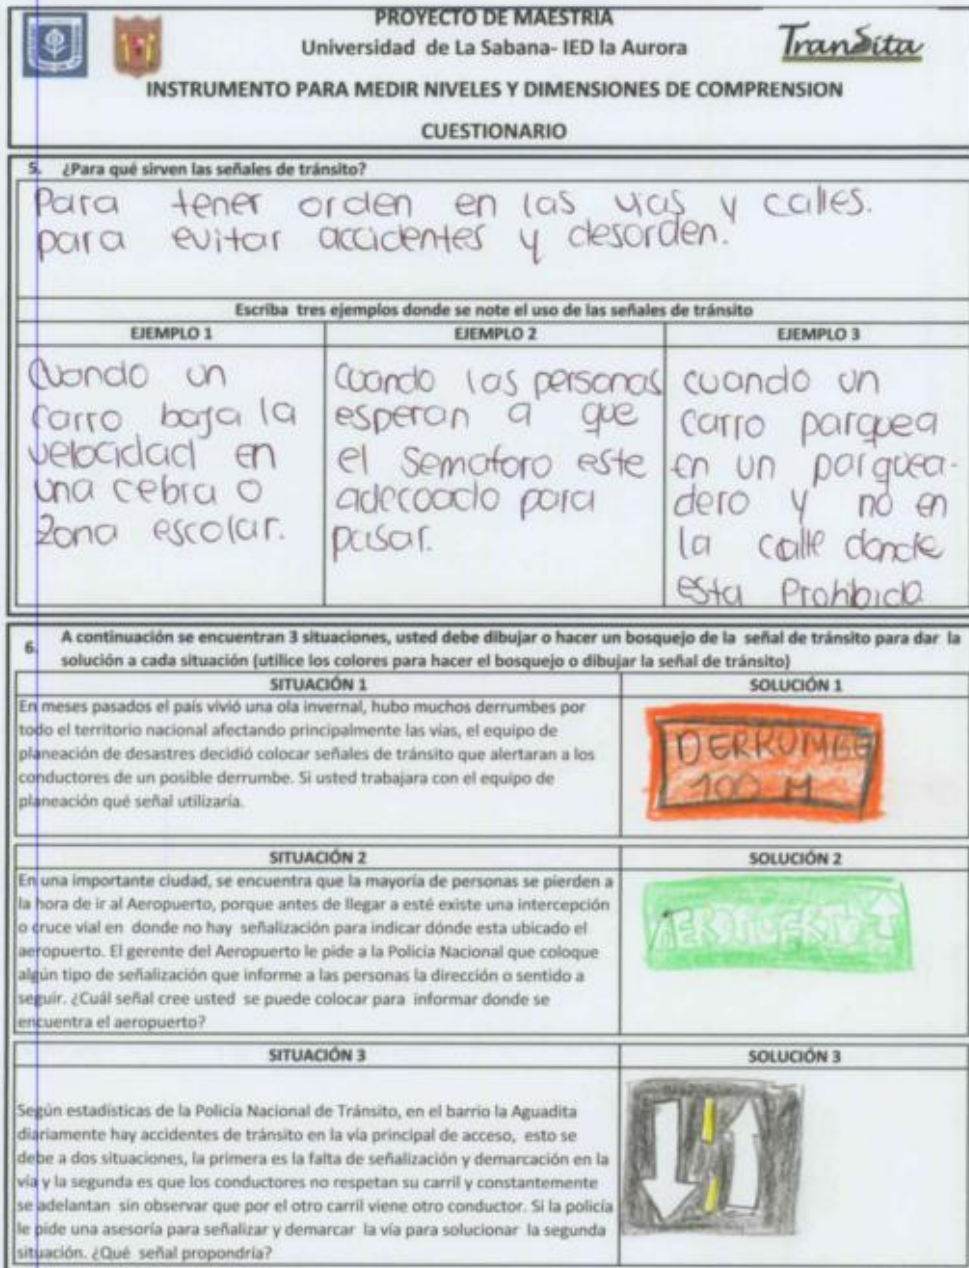 PROYECTO DE MAESTRIA
Universidad de La Sabana- IED la Aurora
TranSita
INSTRUMENTO PARA MEDIR NIVELES Y DIMENSIONES DE COMPRENSION
CUESTIONARIO
5. ¿Para qué sirven las señales de tránsito?
Para tener orden en las vias y calles.
para evitar accidentes y desorden.
Escriba tres ejemplos donde se note el uso de las señales de tránsito
EJEMPLO 1
Cuando un
carro baja la
velocidad en
una cebra o
zona escolar.
EJEMPLO 2
Cuando las personas
esperan a que
el Semaforo este
adecuado para
pasar.
EJEMPLO 3
cuando un
carro parquea
en un parquea-
dero y no en
la calle donde
esta Prohibido
6. A continuación se encuentran 3 situaciones, usted debe dibujar o hacer un bosquejo de la señal de tránsito para dar la
solución a cada situación (utilice los colores para hacer el bosquejo o dibujar la señal de tránsito)
SITUACIÓN 1
En meses pasados el país vivió una ola invernal, hubo muchos derrumbes por
todo el territorio nacional afectando principalmente las vías, el equipo de
planeación de desastres decidió colocar señales de tránsito que alertaran a los
conductores de un posible derrumbe. Si usted trabajara con el equipo de
planeación qué señal utilizaría.
SOLUCIÓN 1
DERRUMBE
100 M
SITUACIÓN 2
En una importante ciudad, se encuentra que la mayoría de personas se pierden a
la hora de ir al Aeropuerto, porque antes de llegar a esté existe una intercepción
o cruce vial en donde no hay señalización para indicar dónde esta ubicado el
aeropuerto. El gerente del Aeropuerto le pide a la Policía Nacional que coloque
algún tipo de señalización que informe a las personas la dirección o sentido a
seguir. ¿Cuál señal cree usted se puede colocar para informar donde se
encuentra el aeropuerto?
SOLUCIÓN 2
AEROPUERTO
SITUACIÓN 3
Según estadísticas de la Policía Nacional de Tránsito, en el barrio la Aguadita
diariamente hay accidentes de tránsito en la vía principal de acceso, esto se
debe a dos situaciones, la primera es la falta de señalización y demarcación en la
vía y la segunda es que los conductores no respetan su carril y constantemente
se adelantan sin observar que por el otro carril viene otro conductor. Si la policía
le pide una asesoría para señalizar y demarcar la vía para solucionar la segunda
situación. ¿Qué señal propondría?
SOLUCIÓN 3